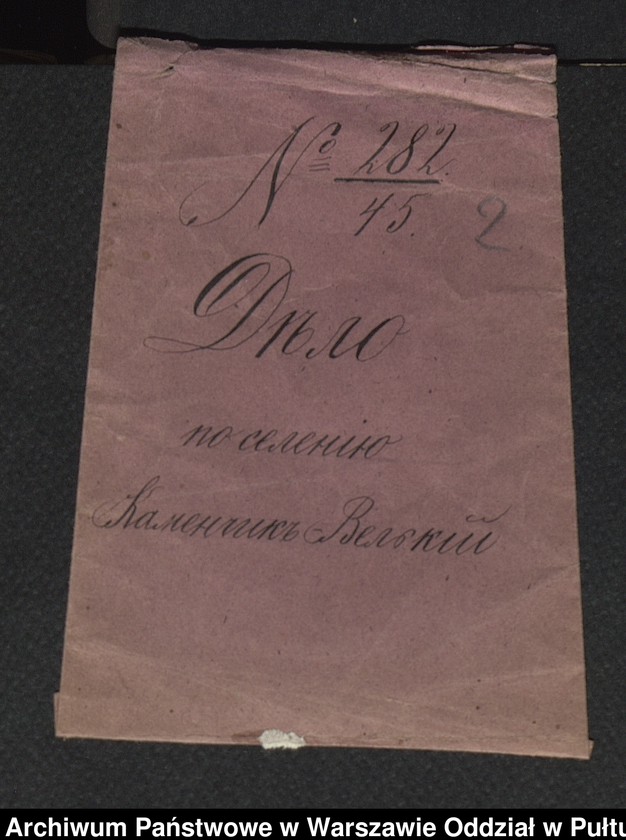 № 282.
45.
2
Дѣло
по селению
Каменчикъ Велькій
Archiwum Państwowe w Warszawie Oddział w Pułtu